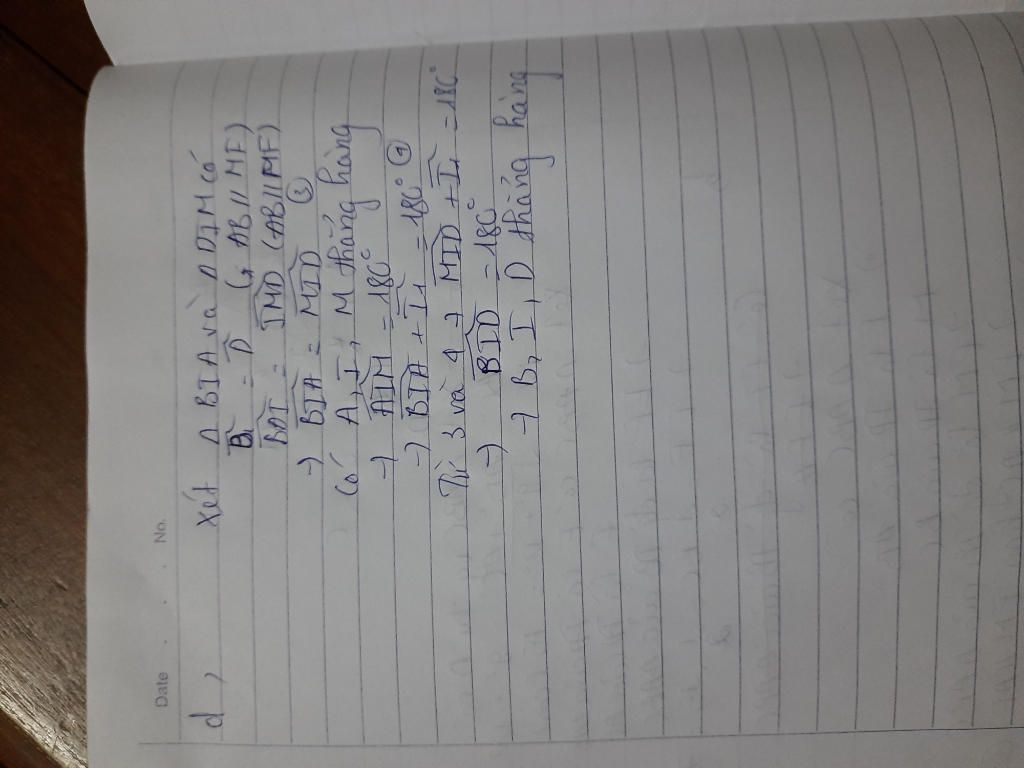 Date . . No.
d, Xét Δ BIA và Δ DIM có
B̂₁ = D̂ (AB // MF)
BAI = IMD (AB // MF)
→ BIA = MID ③
Có A, I, M thẳng hàng
→ AIM = 180°
→ BIA + I₁ = 180° ④
Từ 3 và 4 → MID + I₁ = 180°
→ BID = 180°
→ B, I, D thẳng hàng